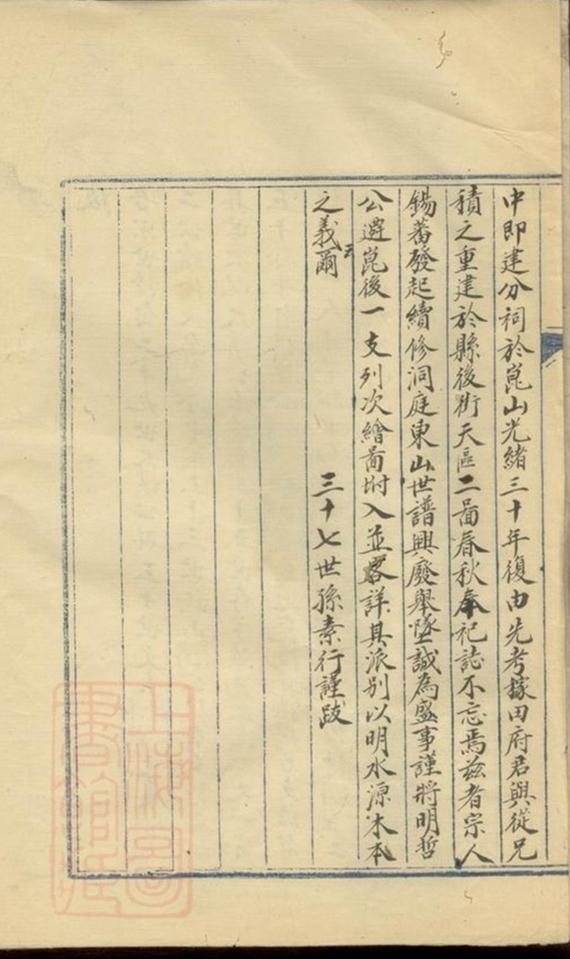 中即建分祠於崑山光緒三十年復由先考稼田府君與從兄
積之重建於縣後街天區二啚春秋奉祀誌不忘焉茲者宗人
錫蕃發起續修洞庭東山世譜興廢舉墜誠為盛事謹將明哲
公遷崑後一支列次繪啚坿入並畧詳其派別以明水源木本
之義爾
三十七世孫素行謹跋
上海圖書館藏